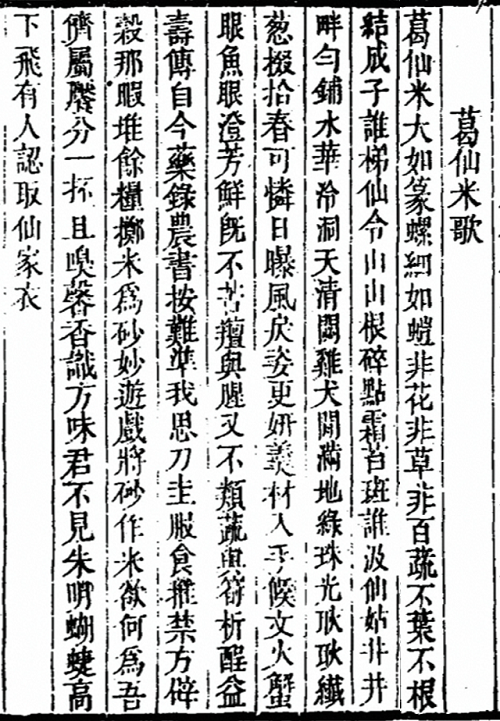 葛仙米歌
葛仙米大如篆螺細如螘非花非草非百蔬不葉不根
結成子誰梯仙令山山根碎點霜苔斑誰汲仙姑井井
畔勻鋪水華冷洞天清閟雞犬閒滿地綠珠光耿耿纖
葱掇拾春可憐日曝風戾姿更妍羹材入手候文火蟹
眼魚眼澄芳鮮旣不苦羶與腥又不類蔬與笴析酲益
壽傳自今藥錄農書按難準我思刀圭服食推禁方辟
穀那暇堆餘糧擲米爲砂妙遊戲將砂作米欲何爲吾
儕屬饜分一抔且嗅馨香識方味君不見朱明蝴蜨高
下飛有人認取仙家衣